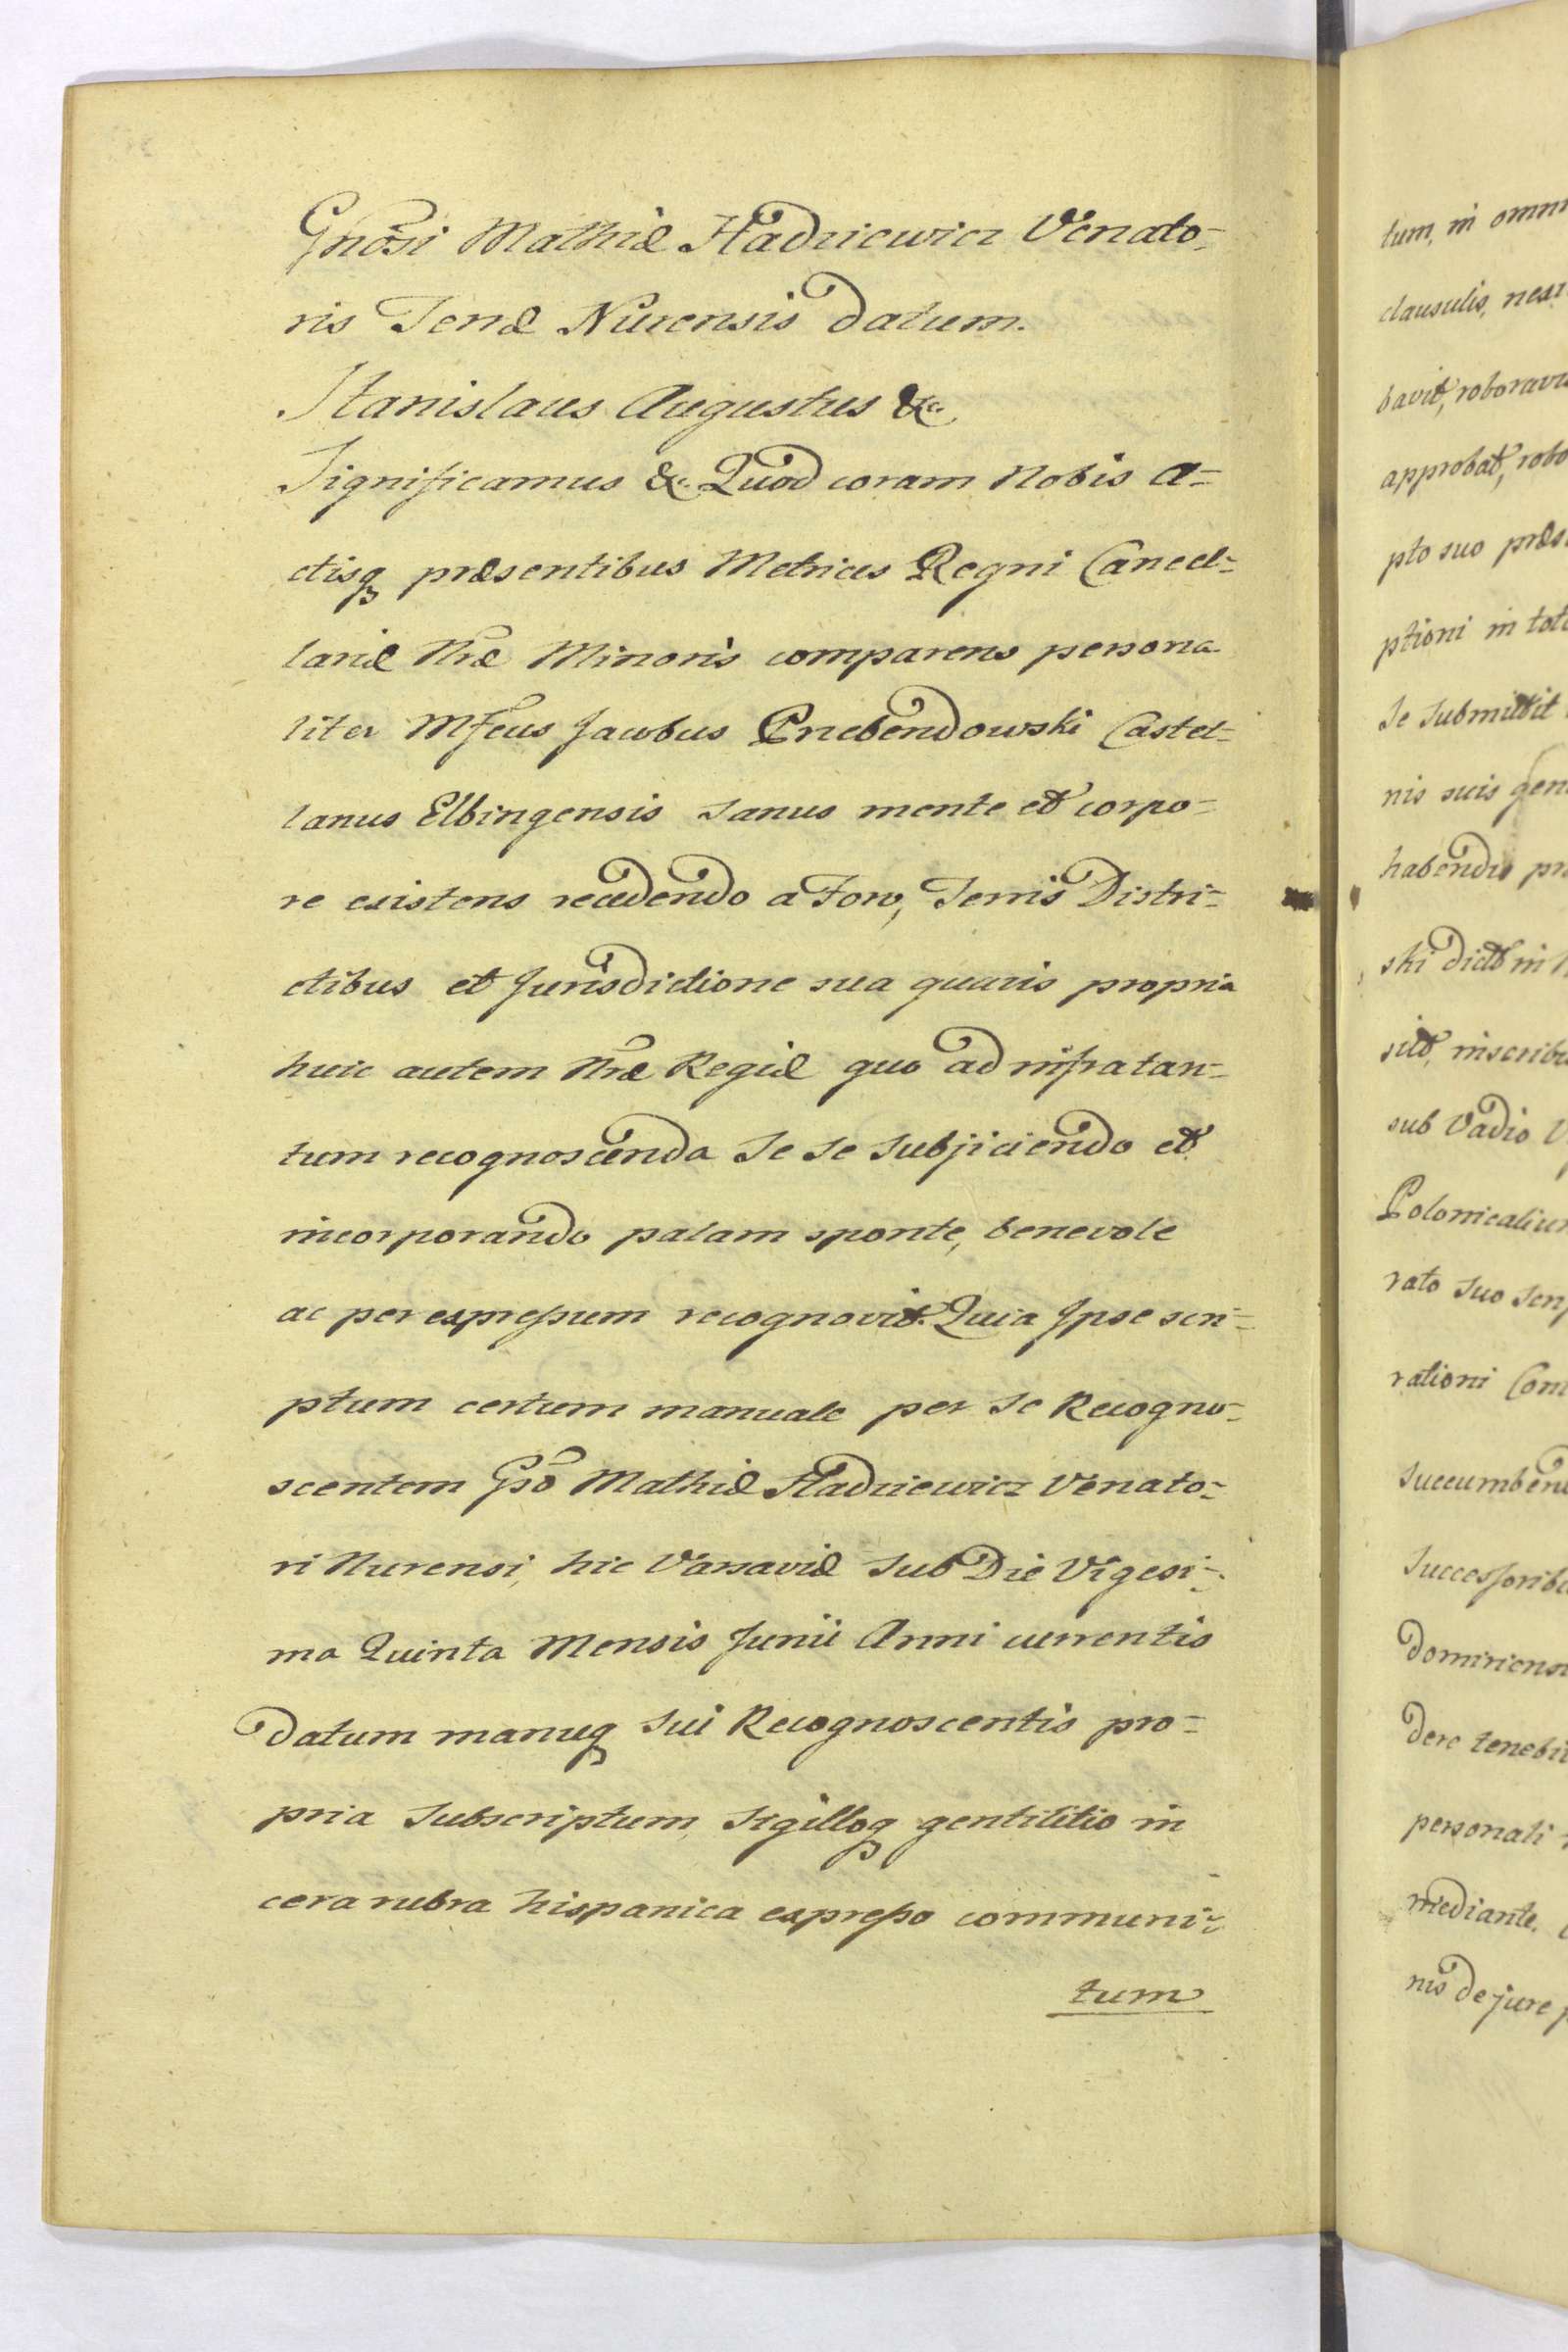 Gnosi Mathiæ Hadziewicz Venato-
ris Terræ Nurensis datum.
Stanislaus Augustus &c.
Significamus &c. Quod coram Nobis A-
ctisq præsentibus Metrices Regni Cancel-
lariæ Nræ Minoris comparens persona
liter Mfcus Jacobus Przebendowski Castel-
lanus Elbingensis sanus mente et corpo-
re existens recedendo a Foro, Terris Distri-
ctibus et Jurisdictione sua quavis propria
huic autem Nræ Regiæ quo ad infra tan-
tum recognoscenda Se se subjiciendo et
incorporando palam sponte, benevole
ac per expressum recognovit. Quia Ipse scri-
ptum certum manuale per Se Recogno-
scentem Gso Mathiæ Hadziewicz Venato-
ri Nurensi, hic Varsaviæ Sub Die Vigesi-
ma Quinta Mensis Junii Anni currentis
datum manuq sui Recognoscentis pro-
pria Subscriptum, Sigilloq gentilitio in
cera rubra hispanica expresso communi-
tum
tum, in omni
clausulis,
bavit, roboravi
approbat, robo
pto suo præs
ptioni in toto
Se Submittit
nis suis gen
habendis pr
ski dicto in
sito, inscribi
sub Vadio V
Polonicaliu
rato suo
rationi Con
succumben
Successorib
Domiriens
dere tenebi
personali
mediante.
nis de jure p